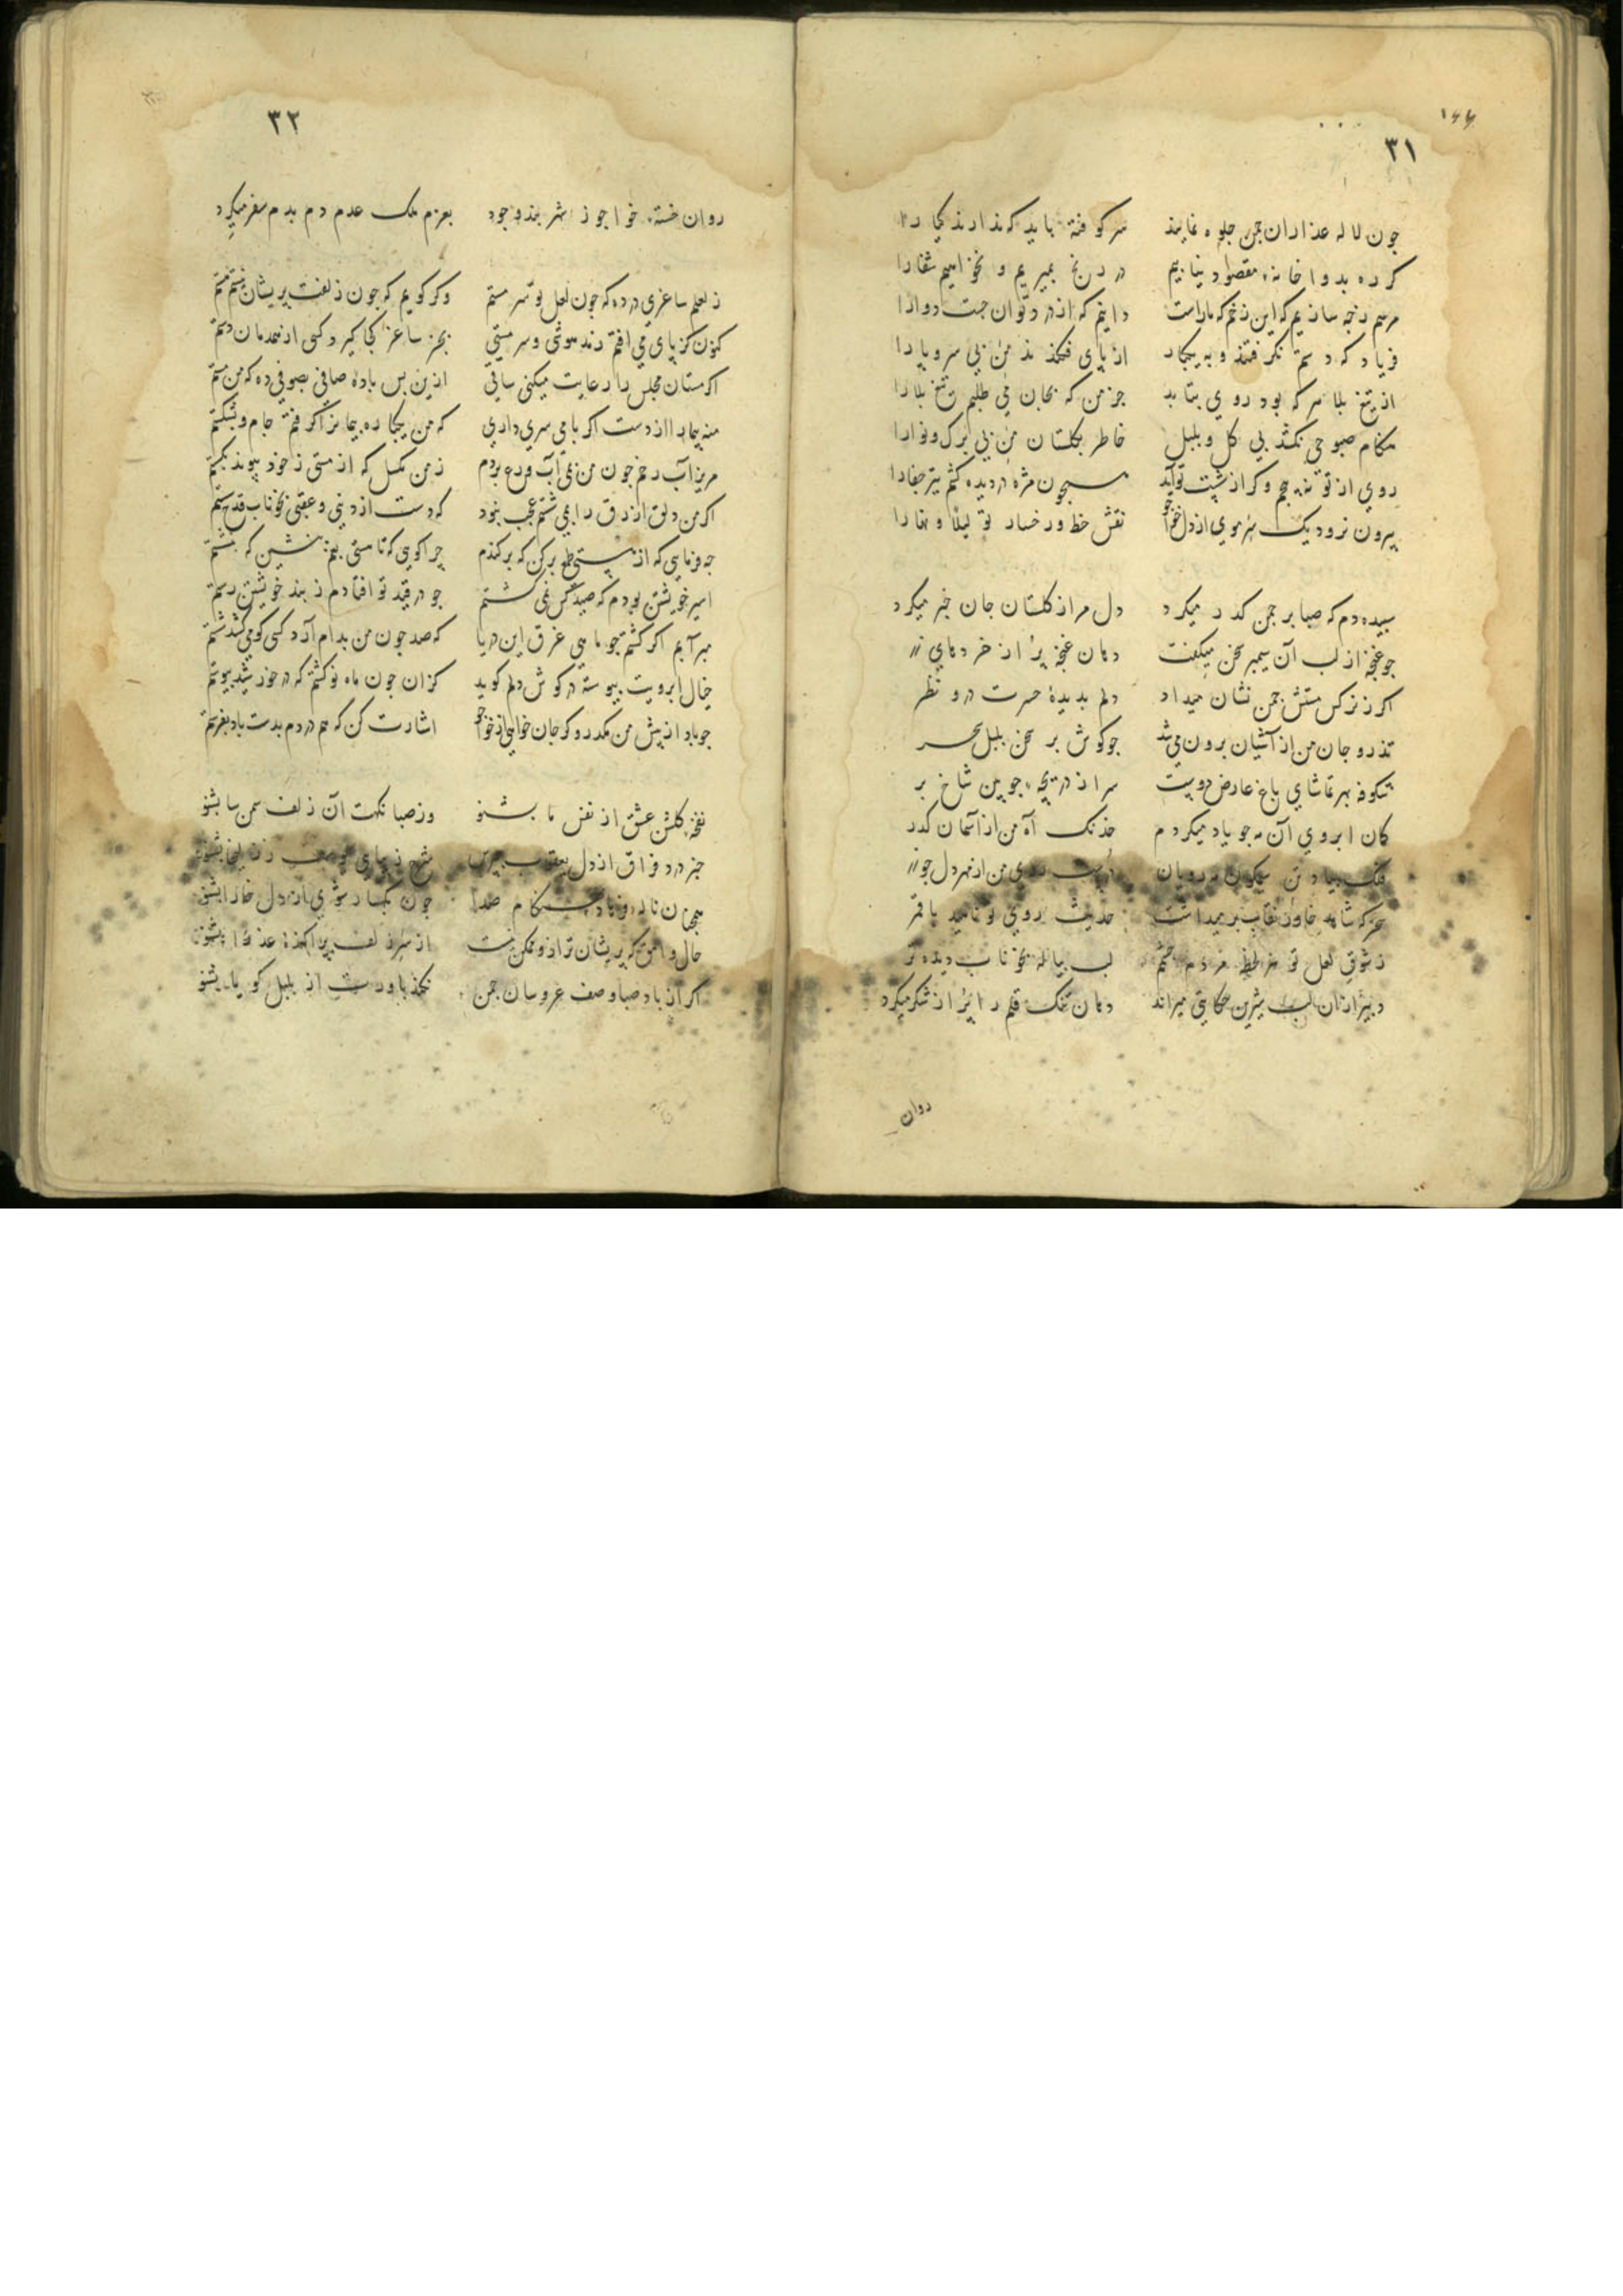 ۳۱
چون لاله عذاران چمن جلوه نمایند سر کوفته باید که ندارند گیا را
گر ره بدواخانهٔ مقصود نیابیم در رنج بمیریم و نخواهیم شفا را
مرهم ز چه سازیم که این زخم که ما راست دانیم که از درد توان جست دوا را
فریاد که دستم نگرفتند و به یکبار از پای فکندند من بی سر و پا را
از تیغ بلا هر که بود روی بتابد جز من که بجان می طلبم تیغ بلا را
هنگام صبوحی نکشد بی گل و بلبل خاطر بگلستان من بی برگ و نوا را
روی از تو نپیچم وگر از شست تو آید همچون مژه در دیده کشم تیر جفا را
بیرون نرود یک سر موی از دل خواجو نقش خط و رخسار تو لیلا و نهارا
سپیده دم که صبا بر چمن گذر میکرد دل مرا ز گلستان جان خبر میکرد
چو غنچه از لب آن سیمبر سخن میگفت دهان غنچه پر از خرده‌های زر
اگر ز نرگس مستش چمن نشان میداد دلم بدیدهٔ حسرت درو نظر
تذرو جان من از آشیان برون می شد چو گوش بر سخن بلبل سحر
شکوفه بهر تماشای باغ عارض دوست سر از دریچهٔ چوبین شاخ بر
کمان ابروی آن مه چو یاد میکردم خدنگ آه من از آسمان گذر
سحر که شاهد خاور نقاب بر میداشت حدیث روی تو ناهید با قمر
ز شوق لعل تو هر لحظه مردم چشم لب پیاله بخوناب دیده تر
دبیر ازان لب شیرین حکایتی میراند دهان تنگ قلم را پر از شکر میکرد
روان
۳۲
روان خستهٔ خواجو ز شهر بند وجود بعزم ملک عدم دم بدم سفر میکرد
ز لعلم ساغری در ده که چون لعل تو سر مستم وگر گویم که چون زلفت پریشان نیستم هستم
کنون کز پای می افتم ز مدهوشی و سر مستی بجز ساغر کجا گیرد کسی از همدمان دستم
اگر مستان مجلس را رعایت میکنی ساقی ازین پس باده صافی بصوفی ده که من مستم
منه پیمانه را از دست اگر با می سری داری که من یکباره پیمان را گرفتم جام و بشکستم
مریز آب رخم چون من ز می آب ورع بردم ز من مگسل که از مستی ز خود پیوند بگسستم
اگر من دلق ازرق را بمی شستم عجب نبود که دست از دنیی و عقبی بخوناب قدح شستم
چه فرمایی که از هستی طمع برکن که برکندم چرا گویی که تا هستی بغم بنشین که بنشستم
اسیر خویشتن بودم که صید کس نمی گشتم چو در قید تو افتادم ز بند خویشتن رستم
سرآبم اگر گشتم چو ماهی غرق این دریا که صد چون من بدام آرد کسی کو می کشد شستم
خیال ابرویت پیوسته در گوش دلم گوید کزان چون ماه نو گشتم که در خورشید پیوستم
چو باد از پیش من مگذر وگر جان خواهی از خواجو اشارت کن که هم در دم بدست باد بفرستم
نفحهٔ گلشن عشق از نفس ما بشنو وز صبا نکهت آن زلف سمن سا بشنو
همچنان نالهٔ فرهاد بهنگام صدا چون بکهسار شوی از دل خارا بشنو
حال وامق که پریشان تر ازو ممکن نیست از سر زلف پراکندهٔ عذرا بشنو
اگر از باد صبا وصف عروسان چمن نکند باورت از بلبل گویا بشنو